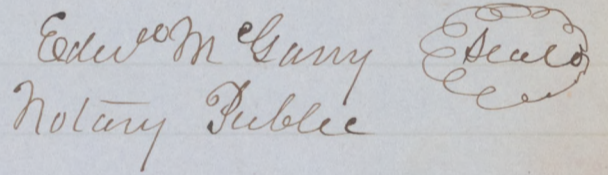 Edwd McGarry Seal
Notary Public